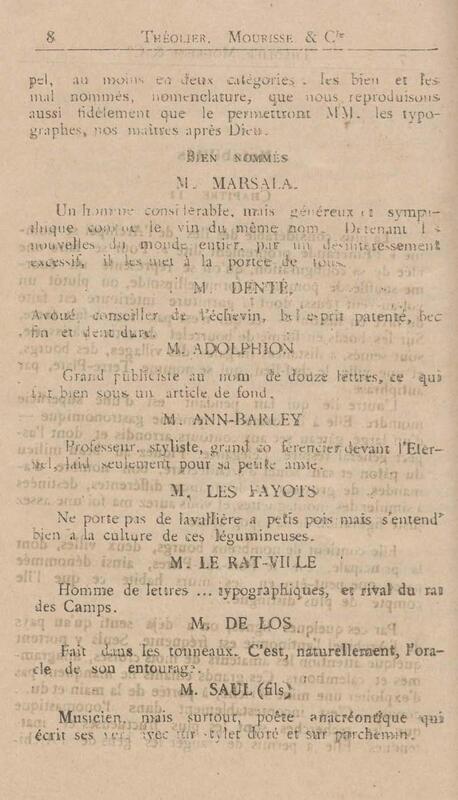 8 THÉOLIER, MOURISSE & Cie
pel, au moins en deux catégories . les bien et les
mal nommés, nomenclature, que nous reproduisons
aussi fidèlement que le permettront MM. les typo-
graphes, nos maîtres après Dieu.
BIEN NOMMÉS
M. MARSALA.
Un homme considérable, mais généreux et sympa-
thique comme le vin du même nom. Détenant les
nouvelles du monde entier, par un désintéressement
excessif, il les met à la portée de tous.
M. DENTÉ.
Avoué conseiller de l'échevin, bel esprit patenté, bec
fin et dent dure.
M. ADOLPHION
Grand publiciste au nom de douze lettres, ce qui
fait bien sous un article de fond.
M. ANN-BARLEY
Professeur, styliste, grand conférencier devant l'Eter-
nel, laid seulement pour sa petite amie.
M. LES FAYOTS
Ne porte pas de lavallière a petis pois mais s'entend
bien a la culture de ces légumineuses.
M. LE RAT-VILLE
Homme de lettres ... typographiques, et rival du rat
des Camps.
M. DE LOS
Fait dans les tonneaux. C'est, naturellement, l'ora-
cle de son entourage.
M. SAUL (fils)
Musicien, mais surtout, poête anacréontique qui
écrit ses vers avec un stylet doré et sur parchemin.